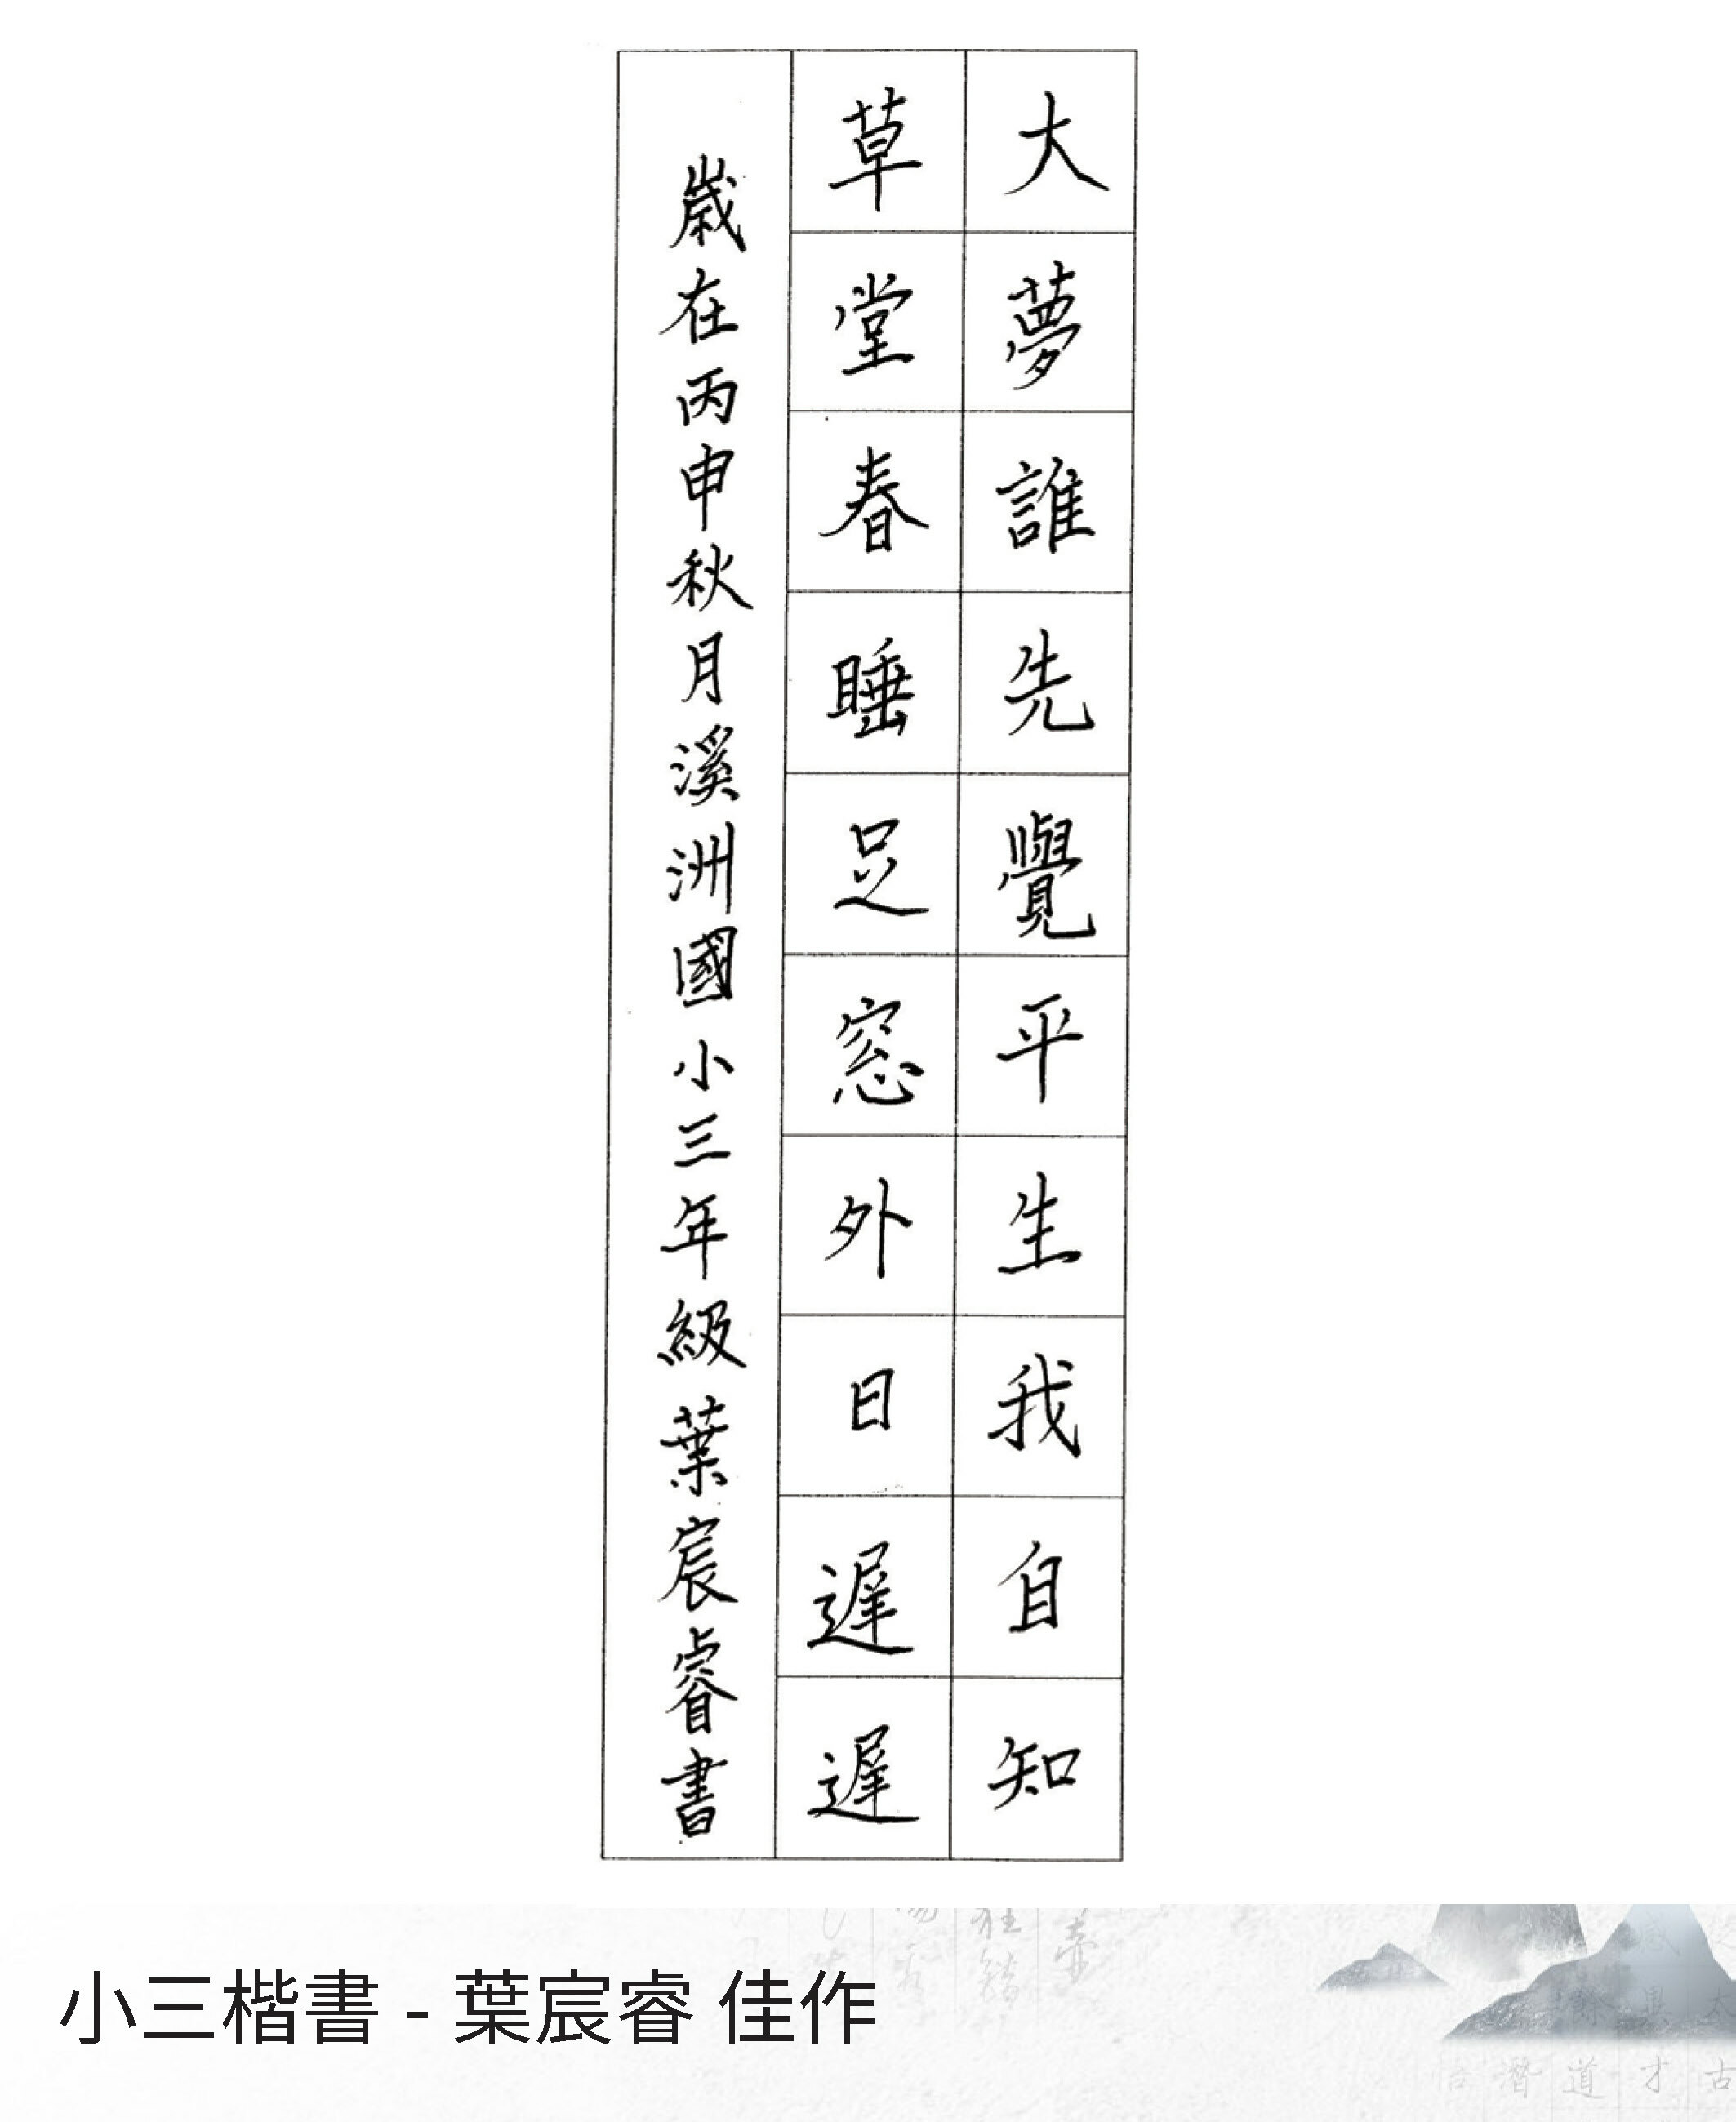 大夢誰先覺平生我自知
草堂春睡足窓外日遲遲
歲在丙申秋月溪洲國小三年級葉宸睿書
小三楷書 - 葉宸睿 佳作